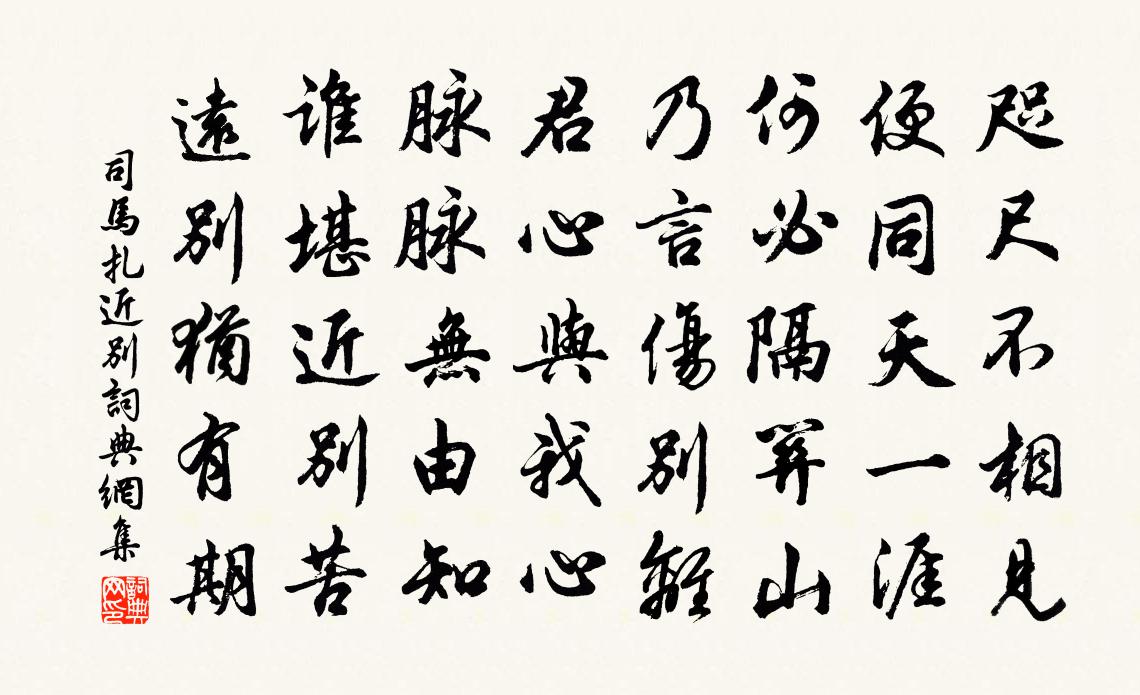 咫尺不相見
便同天一涯
何必隔關山
乃言傷別離
君心與我心
脉脉無由知
誰堪近別苦
遠別猶有期
司馬扎近別詞典網集
詞典网印